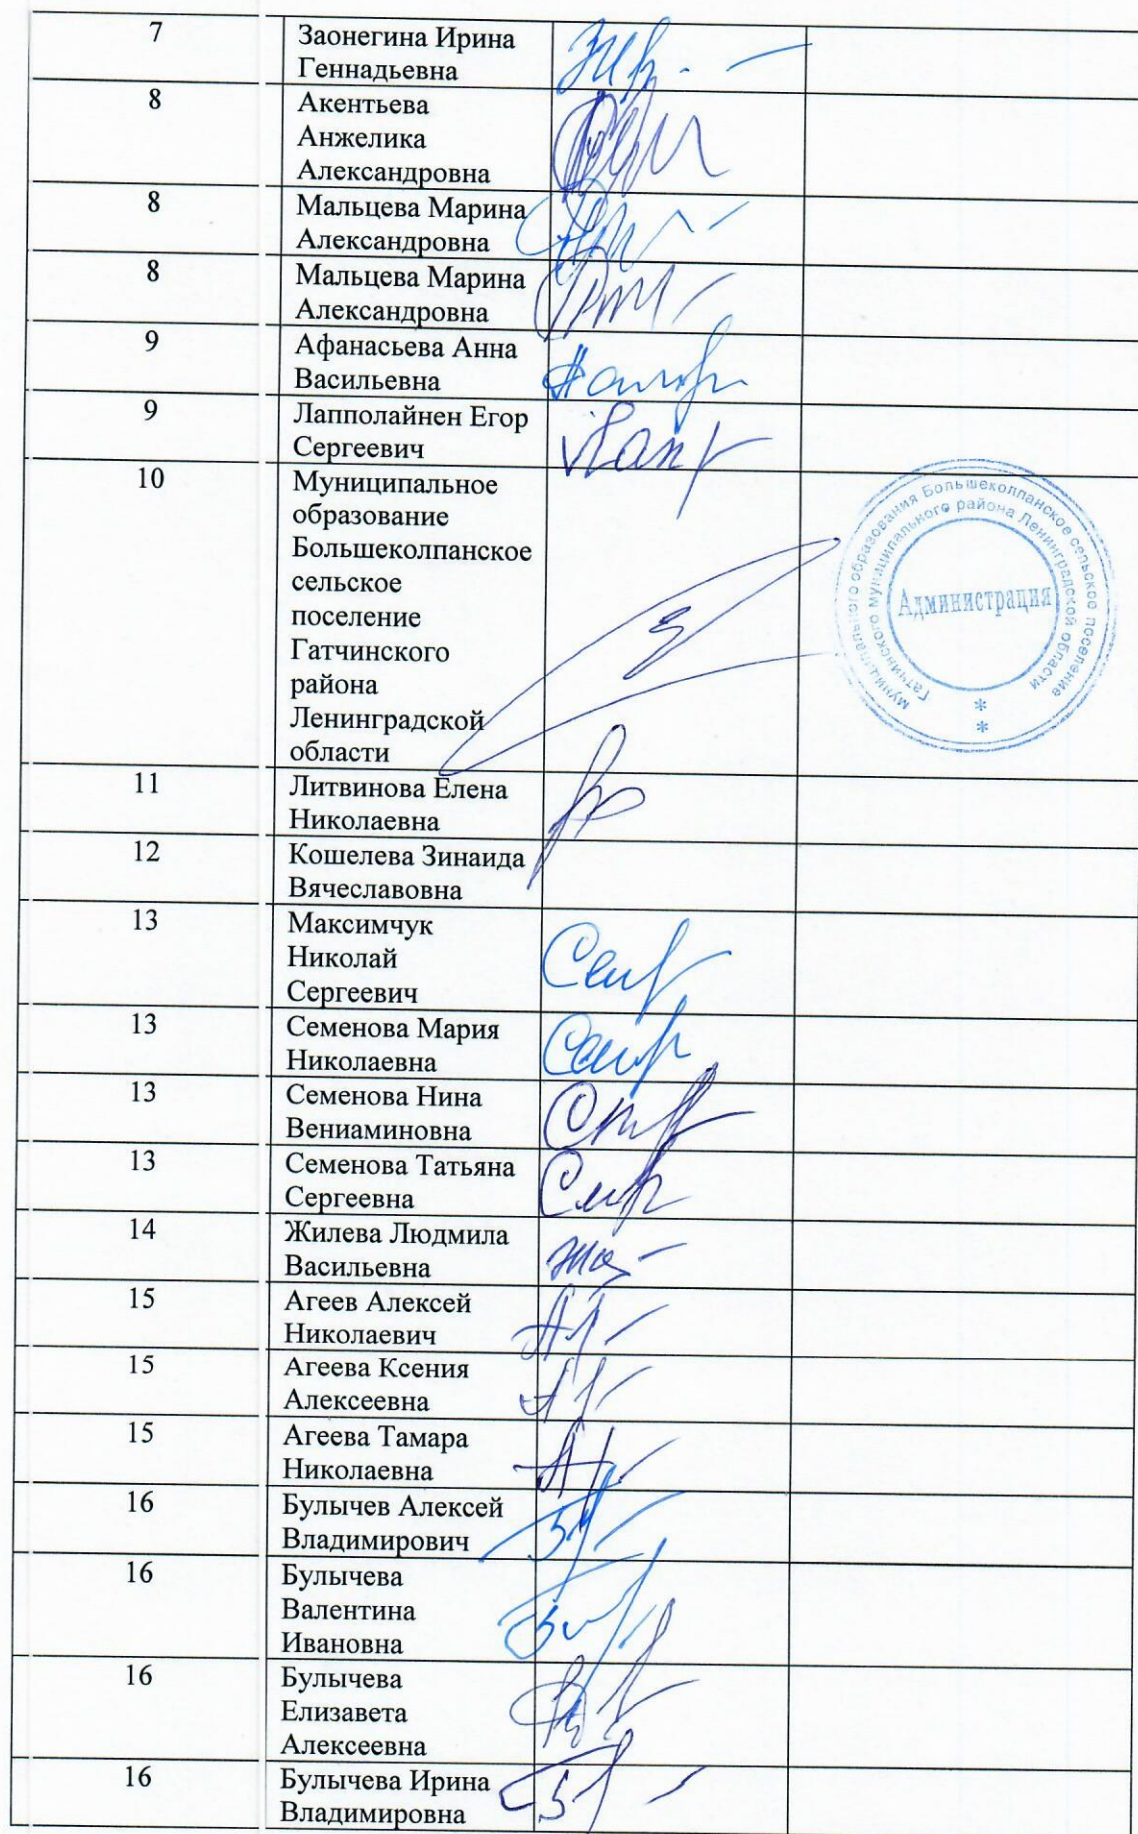 7
Заонегина Ирина
Геннадьевна
8
Акентьева
Анжелика
Александровна
8
Мальцева Марина
Александровна
8
Мальцева Марина
Александровна
9
Афанасьева Анна
Васильевна
9
Лапполайнен Егор
Сергеевич
10
Муниципальное
образование
Большеколпанское
сельское
поселение
Гатчинского
района
Ленинградской
области
муниципального образования Большеколпанское сельское поселение
Гатчинского муниципального района Ленинградской области
Администрация
* *
11
Литвинова Елена
Николаевна
12
Кошелева Зинаида
Вячеславовна
13
Максимчук
Николай
Сергеевич
13
Семенова Мария
Николаевна
13
Семенова Нина
Вениаминовна
13
Семенова Татьяна
Сергеевна
14
Жилева Людмила
Васильевна
15
Агеев Алексей
Николаевич
15
Агеева Ксения
Алексеевна
15
Агеева Тамара
Николаевна
16
Булычев Алексей
Владимирович
16
Булычева
Валентина
Ивановна
16
Булычева
Елизавета
Алексеевна
16
Булычева Ирина
Владимировна